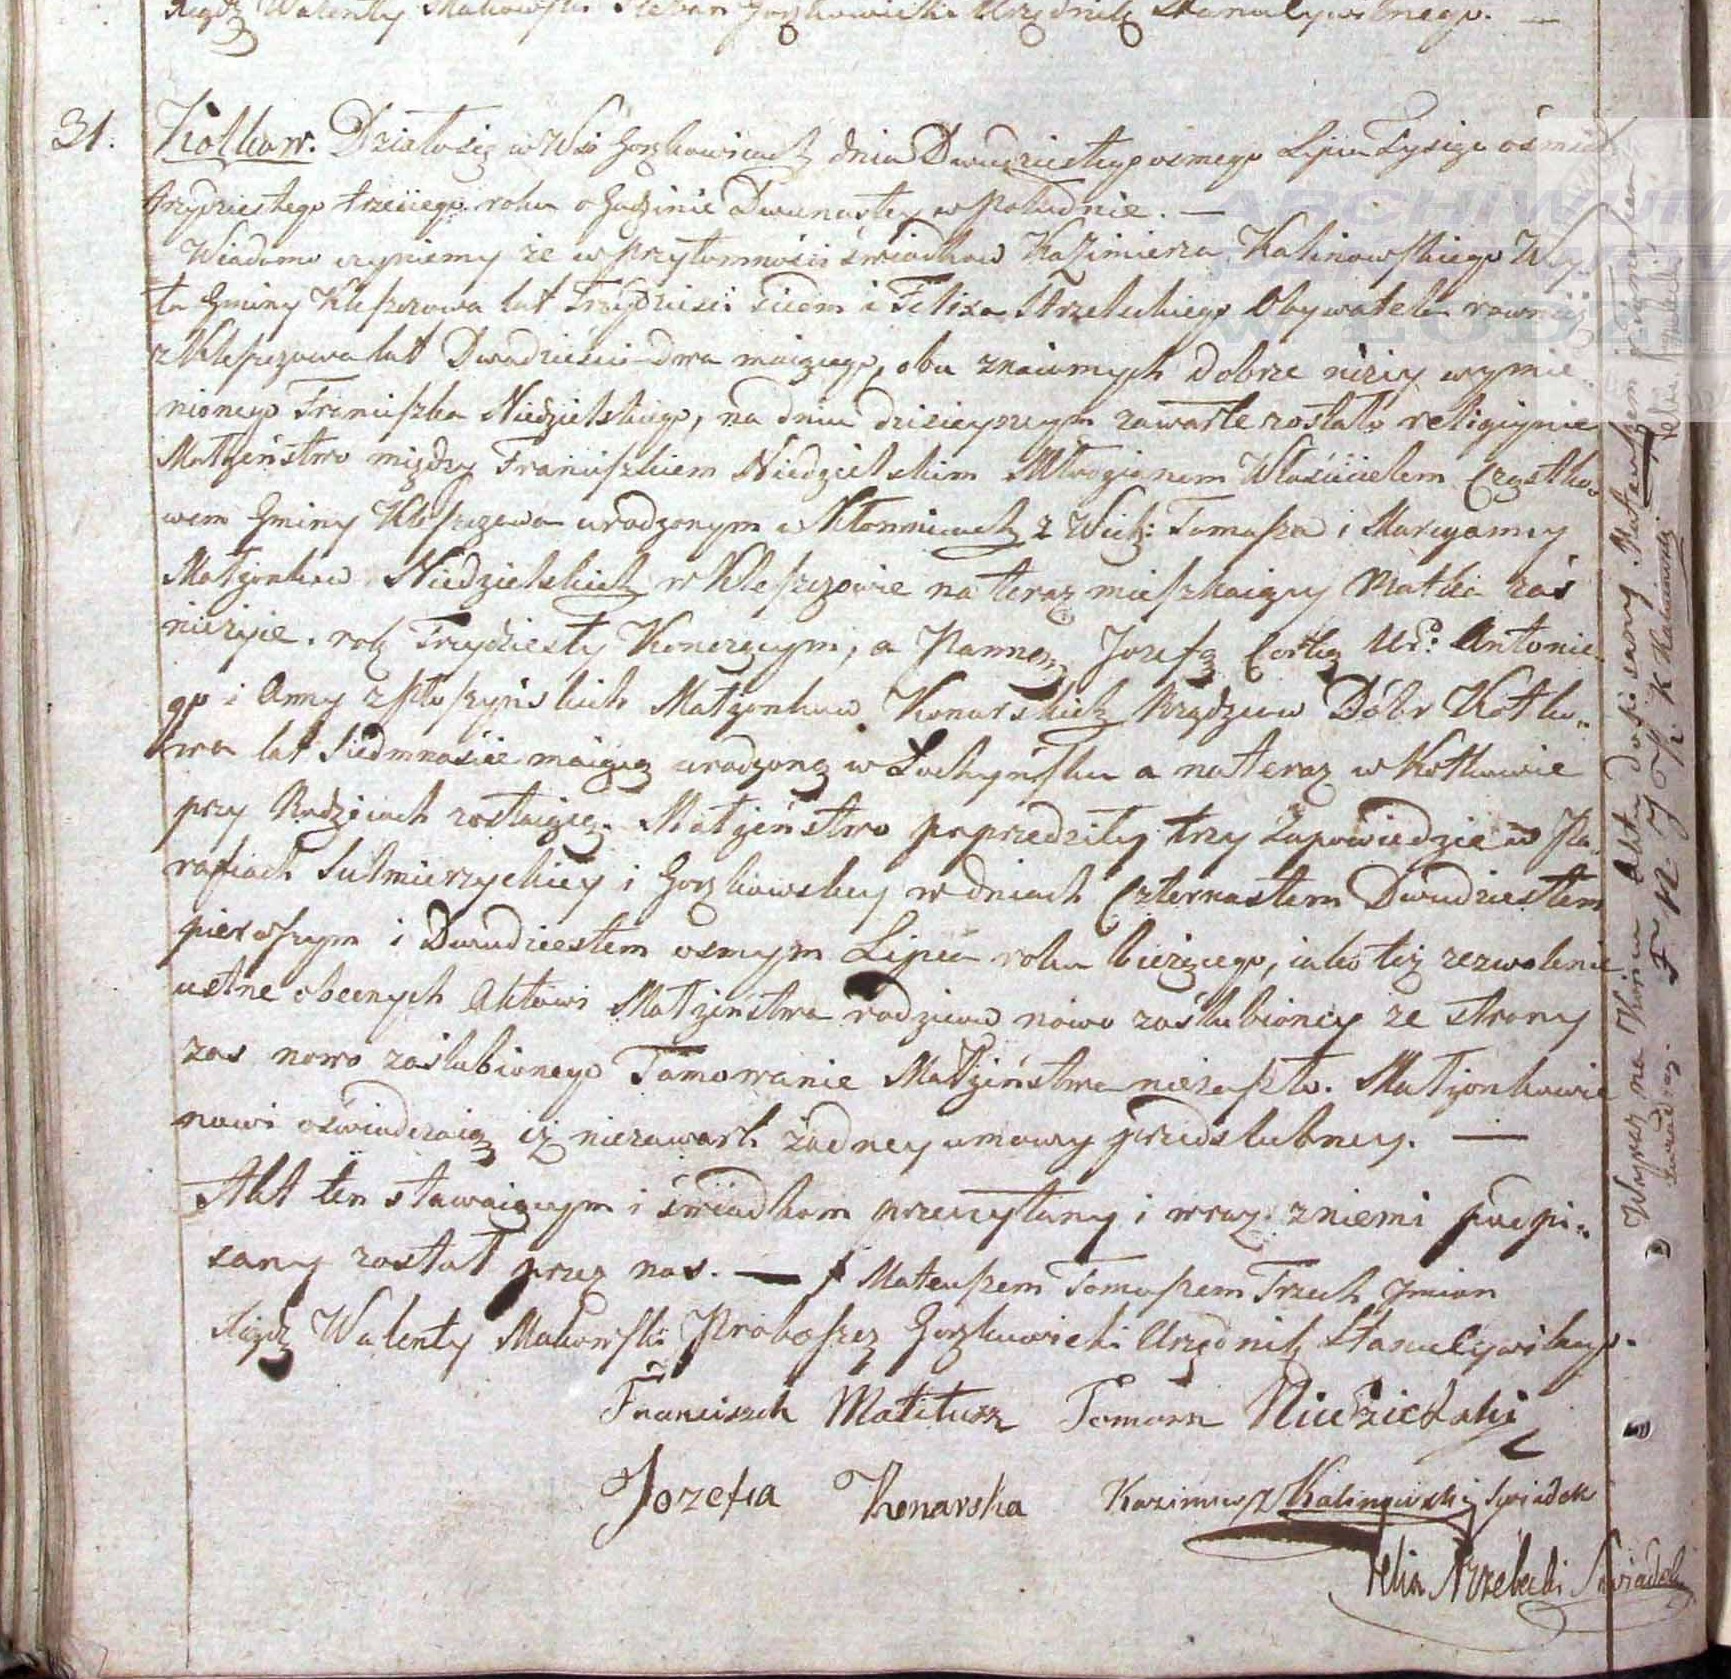 Xiądz Walenty Makowski Pleban Gorzkowicki Urzędnik Stanu Cywilnego. —
31. Kotków. Działo się w Wsi Gorzkowicach dnia Dwudziestego osmego Lipca Tysiąc ośmset
trzydziestego trzeciego roku o Godzinie Dwunastey w Południe. —
Wiadomo czyniemy że w przytomności świadków Kazimierza Kalinowskiego Wóy-
ta Gminy Kleszczowa lat Trzydzieści siedm i Felixa Strzeleckiego Obywatela rownież
z Kleszczowa lat Dwadzieścia dwa maiącego, obu znaiomych dobrze niżey wymie-
nionego Franciszka Niedzielskiego, na dniu dzisieyszym zawarte zostało religiynie
Małżeństwo między Franciszkiem Niedzielskim Młodzianem Właścicielem Cząstko-
wem Gminy Kleszczowa urodzonym w Kłomnicach z Wielk: Tomasza i Maryanny
Małżonków Niedzielskich w Kleszczowie na teraz mieszkaiący Matka zaś
nieżyie. rok Trzydziesty Kończącym, a Panną Jozefą Corką Ur: Antonie-
go i Anny z Małżonków Konarskich Rządzców Dóbr Kotko-
wa lat Siedmnaście maiącą urodzoną w Łochyńsku a na teraz w Kotkowie
przy Rodzicach zostaiącą. Małżeństwo poprzedziły trzy Zapowiedzie w Pa-
rafiach Sulmierzyckiey i Gorzkowskiey w dniach Czternastem Dwudziestem
pierwszym i Dwudziestem osmym Lipca roku bieżącego, iako też zezwolenie
ustne obecnych Aktowi Małżeństwa rodziców nowo zaślubioney ze strony
zas nowo zaślubionego Tamowanie Małżeństwa niezaszło. Małżonkowie
nowi oświadczaią iż niezawarli żadney umowy przedslubney. —
Akt ten stawaiącym i świadkom przeczytany i wraz z niemi podpi-
sany został przez nas. — Mateuszem Tomaszem Trzech Jmion
Xiądz Walenty Makowski Proboszcz Gorzkowicki Urzędnik Stanu Cywilnego.
Franciszek Mateusz Tomasz Niedzielski
Jozefa Konarska Kazimierz Kalinowski Swiadek
Felix Strzelecki Swiadek
Wyraz na Akty dopisany. Mateuszem
F N J K K Kalinowski
swiadkaz.
ARCHIWUM
W ŁODZI